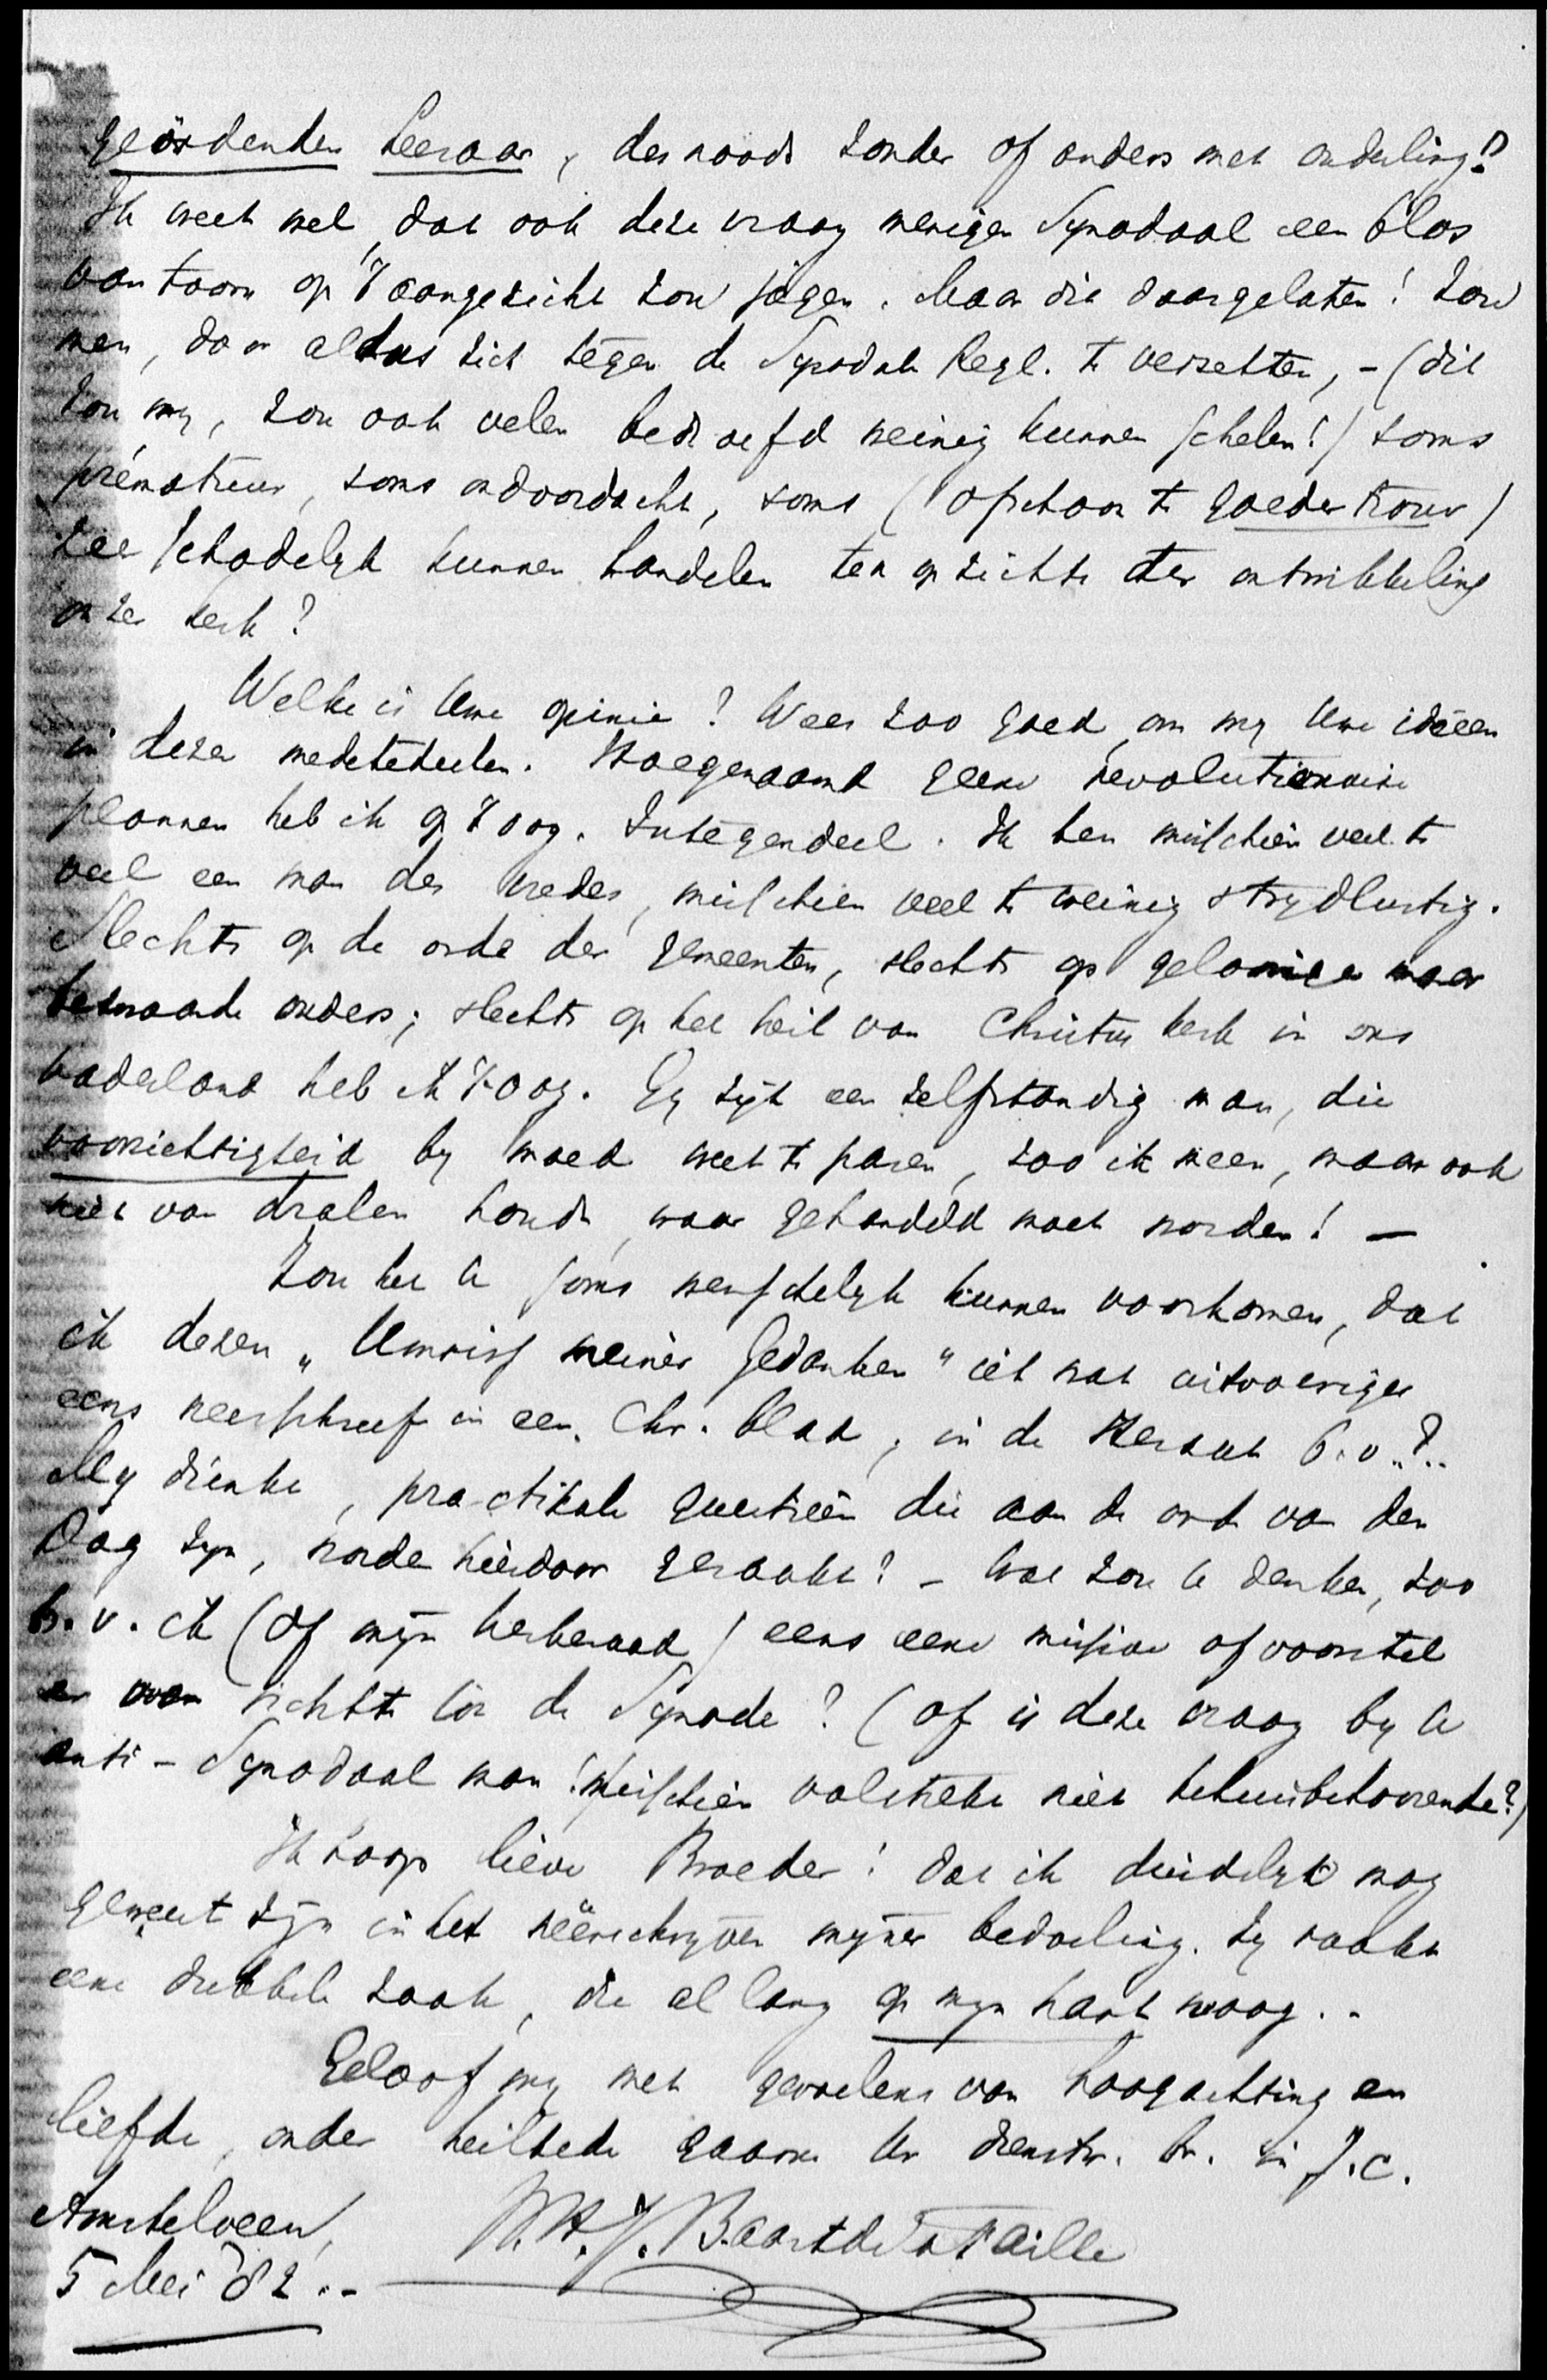 geördenden Leeraar, des noods zonder of anders met ouderling!?
Ik weet wel, dat ook deze vraag menigen Synodaal een blos
van toorn op 't aangezicht zou jagen. Maar dit daargelaten! Zou
men, door aldus zich tegen de Synodale Regl. te verzetten, - (dit
zou my, zou ook velen bedroefd weinig kunnen schelen!) soms
prématuur, soms ondoordacht, soms (ofschoon te goeder trouw)
zeer schadelyk kunnen handelen ten opzichte der ontwikkeling
onzer kerk?
Welke is Uwe opinie? Wees zoo goed, om my Uwe ideeën
in dezen medetedeelen. Hoegenaamd geene revolutionaire
plannen heb ik op 't oog. Integendeel. Ik ben misschien veel te
veel een man des vredes, misschien veel te weinig strydlustig.
Slechts op de orde der gemeenten, slechts op geloovige maar
bezwaarde ouders; slechts op het heil van Christus kerk in ons
vaderland heb ik 't oog. Gy zyt een zelfstandig man, die
voorzichtigheid by moed weet te paren, zoo ik meen, maar ook
niet van dralen houdt, waar gehandeld moet worden! —
Zou het U soms wenschelyk kunnen voorkomen, dat
ik dezen „Umriss meiner Gedanken" iet wat uitvoeriger
eens neerschreef in een Chr. blad, in de Heraut b.v..?..
My dunkt, practikale questieën die aan de orde van den
Dag zyn, worden hierdoor geraakt? - Wat zou U denken, zoo
b.v. ik (of myn kerkeraad) eens eene missive of voorstel
er over richtte tot de Synode? (of is deze vraag by U
anti-Synodaal man! misschien volstrekt niet tehuisbehoorende?)
Ik hoop lieve Broeder! dat ik duidelyk mag
geweest zyn in het neêrschryven myner bedoeling. Zy raakt
eene dubbele zaak, die al lang op myn hart woog..
Geloof my met gevoelens van hoogachting en
liefde, onder heilbede gaarne Uw dienstw. br. in J.C.
Amstelveen, W.H.J. Baart de la Faille
5 Mei '82.-